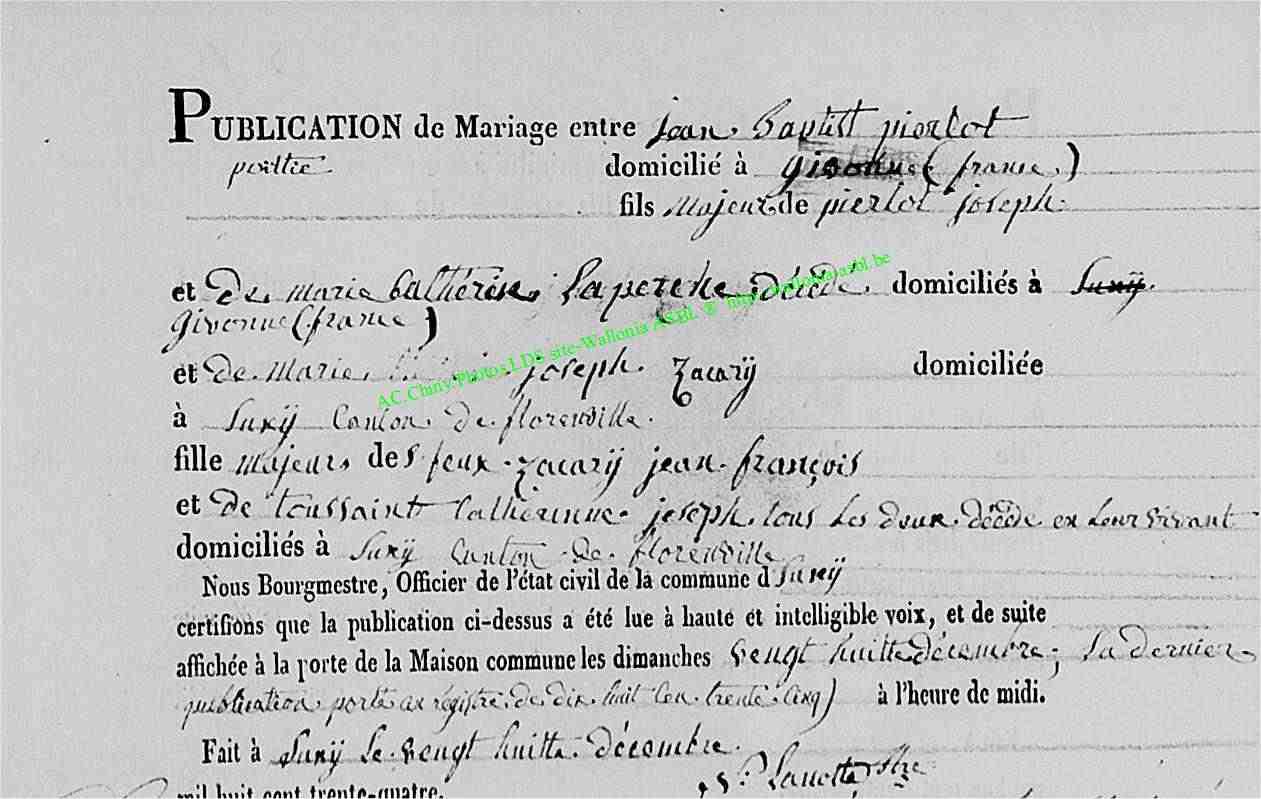 PUBLICATION de Mariage entre jean Baptist pierlot
domicilié à givonne (france)
fils Majeur de pierlot joseph
et De marie Cathérine Laperche décédé domiciliés à Suxÿ.
givonne (france)
et De Marie joseph Zacarÿ domiciliée
à Suxÿ Canton De florenville.
fille majeure des feux Zacarÿ jean françois
et De toussaint Catherinne joseph tous Les deux décédé en Leur vivant
domiciliés à Suxÿ Canton De florenville
Nous Bourgmestre, Officier de l'état civil de la commune d Suxÿ
certifions que la publication ci-dessus a été lue à haute et intelligible voix, et de suite
affichée à la porte de la Maison commune les dimanches vengt huitte décembre, La dernier
publication porté au régistre de dix huit Cen trente Cinq) à l'heure de midi.
Fait à Suxÿ Le vengt huitte décembre.
mil huit cent trente-quatre.
AC.Chiny Photos LDS site-Wallonia ASBL ® http://wallonia-asbl.be